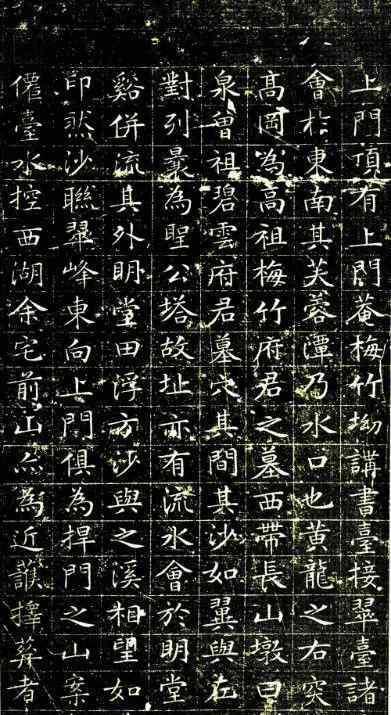 上門項有上門菴梅竹坳講書臺接翠臺諸
會於東南其芙蓉潭乃水口也黄龍之右突
髙岡為高祖梅竹府君之墓西帶長山墩曰
泉曾祖碧雲府君墓穴其間其沙如翼與在
對列曩為聖公塔故址亦有流水會於明堂
谿併流其外明堂田浮方沙與之溪相望如
印然沙聯翠峰東向上門俱為捍門之山案
僊臺水控西湖余宅前山亦為近護擇葬者